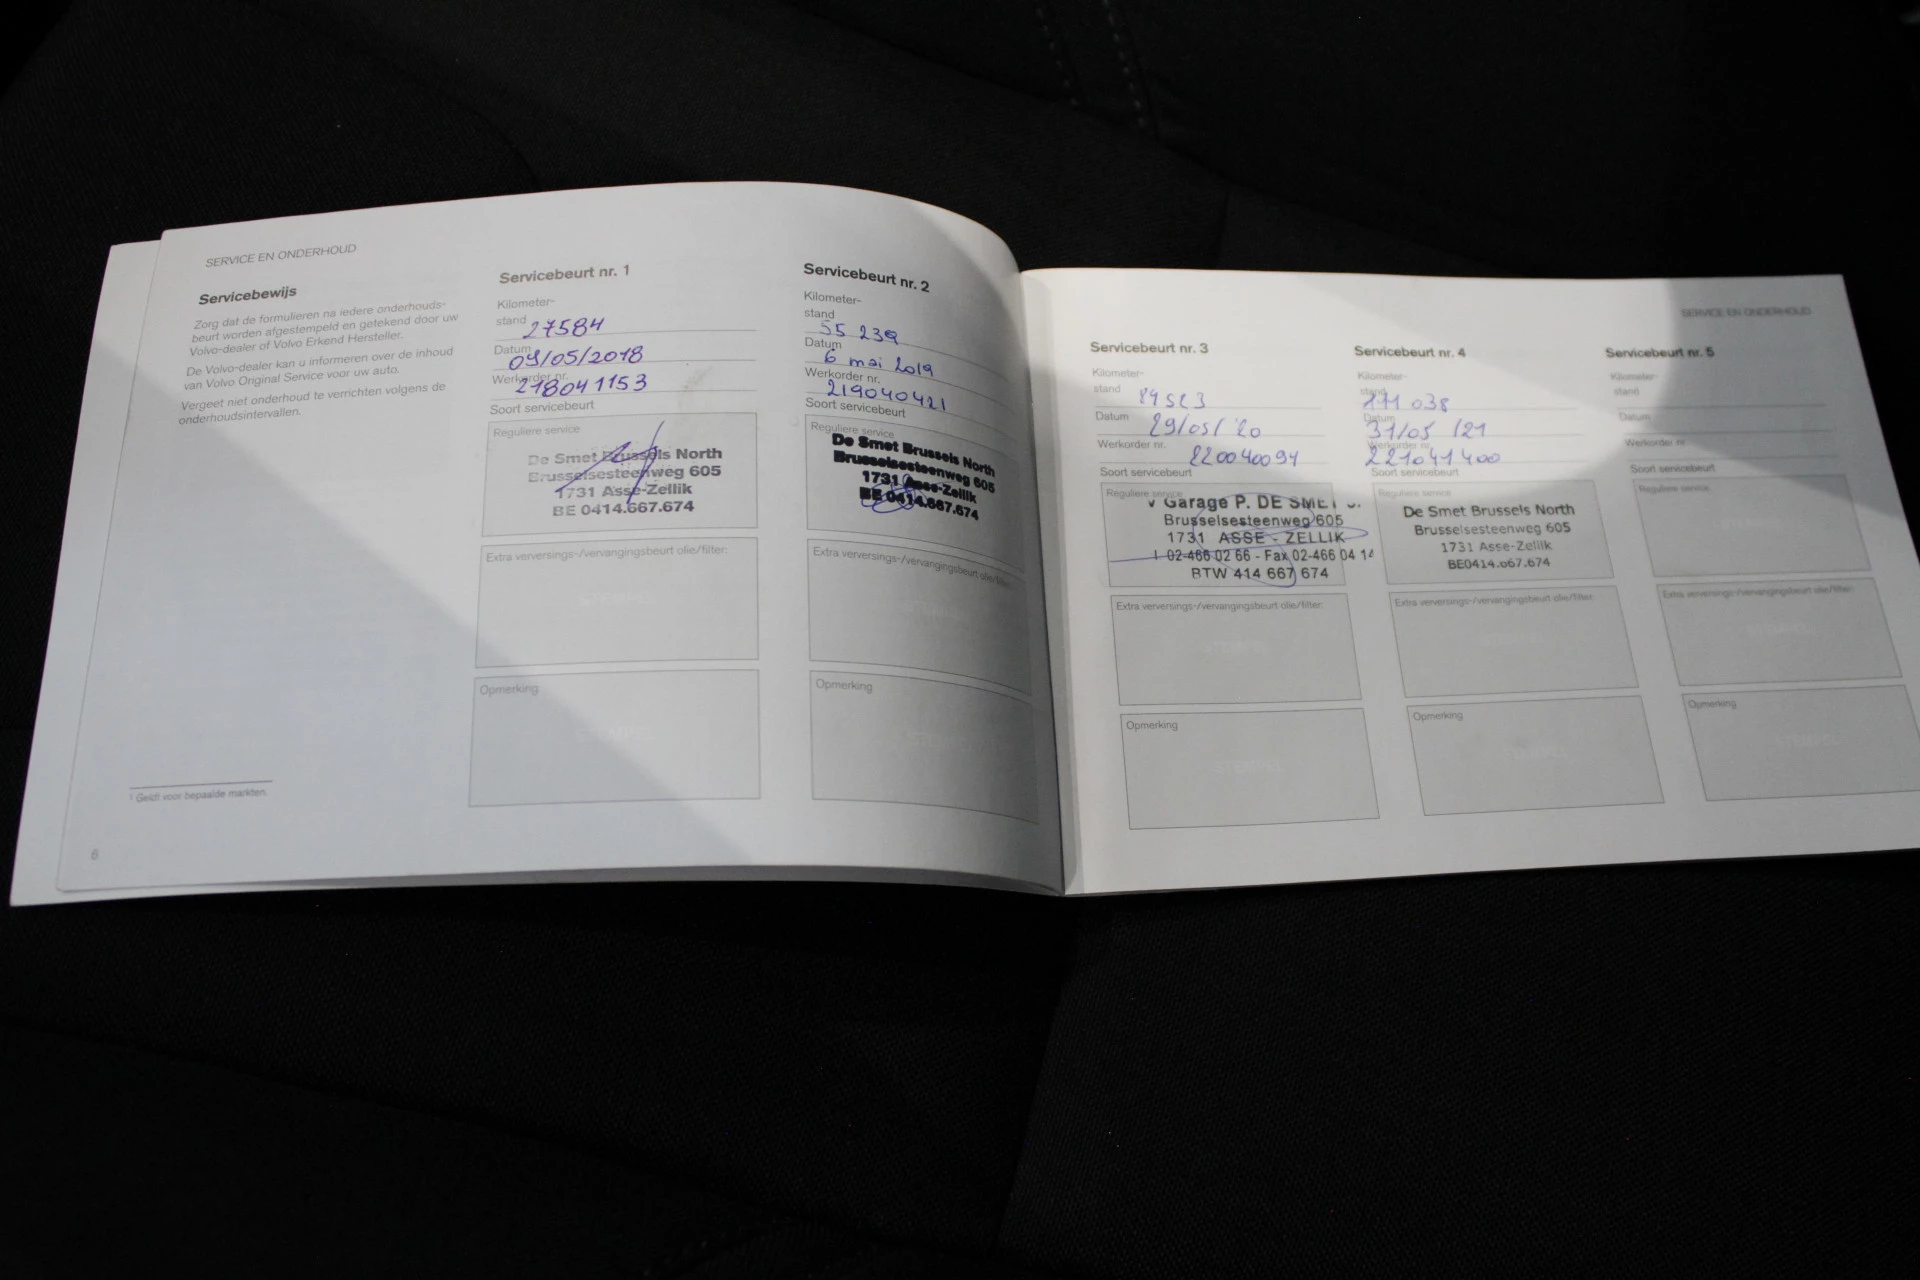 SERVICE EN ONDERHOUD
Servicebewijs
Zorg dat de formulieren na iedere onderhouds-
beurt worden afgestempeld en getekend door uw
Volvo-dealer of Volvo Erkend Hersteller.
De Volvo-dealer kan u informeren over de inhoud
van Volvo Original Service voor uw auto.
Vergeet niet onderhoud te verrichten volgens de
onderhoudsintervallen.
1 Geldt voor bepaalde markten.
6
Servicebeurt nr. 1
Kilometer-
stand 27584
Datum 09/05/2018
Werkorder nr. 218041153
Soort servicebeurt
Reguliere service
De Smet Brussels North
Brusselsesteenweg 605
1731 Asse-Zellik
BE 0414.667.674
Extra verversings-/vervangingsbeurt olie/filter:
STEMPEL
Opmerking
Servicebeurt nr. 2
Kilometer-
stand 55 239
Datum 6 mai 2019
Werkorder nr. 219040421
Soort servicebeurt
Reguliere service
De Smet Brussels North
Brusselsesteenweg 605
1731 Asse-Zellik
BE 0414.667.674
Extra verversings-/vervangingsbeurt olie/filter:
STEMPEL
Opmerking
STEMPEL
SERVICE EN ONDERHOUD
Servicebeurt nr. 3
Kilometer-
stand
Datum 29/05/'20
Werkorder nr. 220040094
Soort servicebeurt
Reguliere service
Garage P. DE SMET
Brusselsesteenweg 605
1731 ASSE - ZELLIK
02-466 02 66 - Fax 02-466 04 14
BTW 414 667 674
Extra verversings-/vervangingsbeurt olie/filter:
STEMPEL
Opmerking
STEMPEL
Servicebeurt nr. 4
Kilometer-
stand 111 038
Datum 31/05 /21
Werkorder nr. 221041400
Soort servicebeurt
Reguliere service
De Smet Brussels North
Brusselsesteenweg 605
1731 Asse-Zellik
BE0414.667.674
Extra verversings-/vervangingsbeurt olie/filter:
Opmerking
STEMPEL
Servicebeurt nr. 5
Kilometer-
stand
Datum
Werkorder nr
Soort servicebeurt
Reguliere service
Extra verversings-/vervangingsbeurt olie/filter:
STEMPEL
Opmerking
STEMPEL